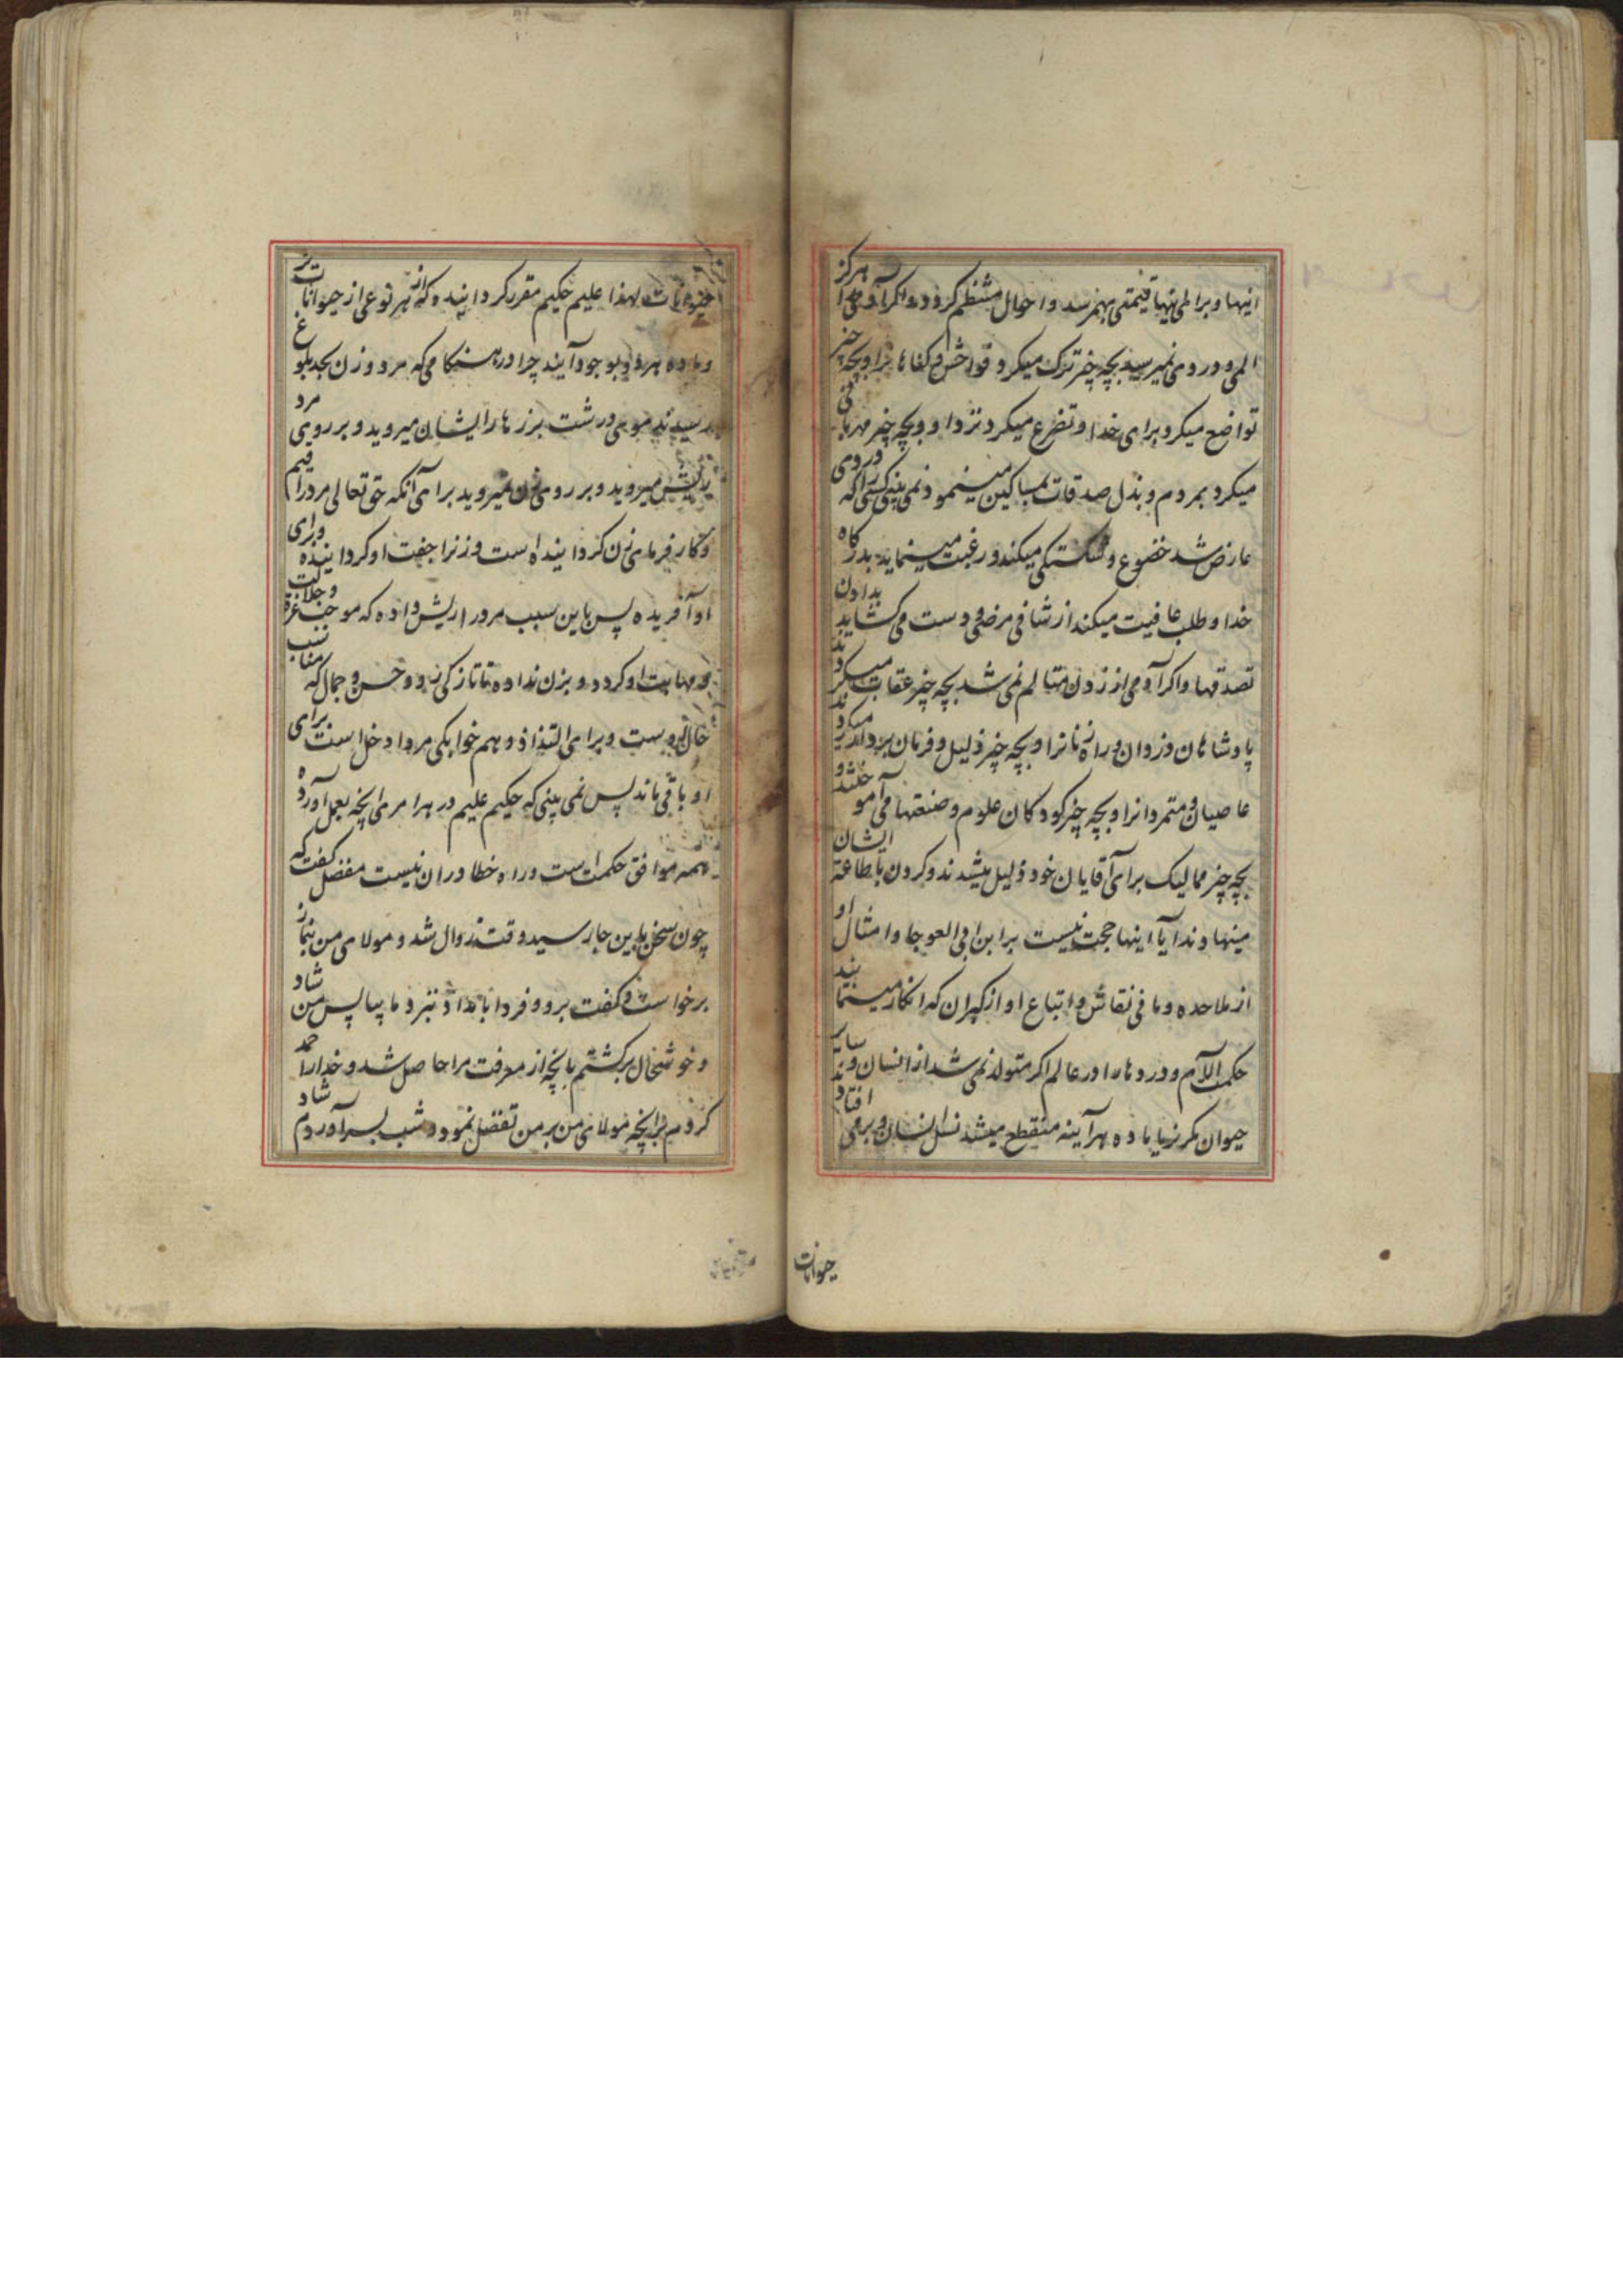 اینها و برای اینها قیمتی بهمرسد و احوال منتظم گردد و اگر آدمی را هرگز
المی و دردی نمیرسید بچه چیز ترک میکرد فواحش و گناها را و بچه چیز
تواضع میکرد برای خدا و تضرع میکرد نزد او و بچه چیز مهربانی
میکرد بمردم و بذل صدقات بمساکین مینمود نمی بینی کسی را که دردی
عارض شد خضوع و شکستگی میکند و رغبت مینماید بدرگاه
خدا و طلب عافیت میکند از شافی مرضی و دست می کشاید بدادن
تصدقها و اگر آدمی از زدن متالم نمی شد بچه چیز عقاب میکردند
پادشاهان دزدان و راه زنانرا و بچه چیز ذلیل و فرمان بردار میکردند
عاصیان و متمردانرا و بچه چیز کودکان علوم و صنعتها می آموختند و
بچه چیز ممالیک برای آقایان خود ذلیل میشدند و گردن باطاعة ایشان
مینهادند آیا اینها حجت نیست بر ابن ابی العوجا و امثال او
از ملاحده و مانی نقاش و اتباع او از گبران که انکار مینمایند
حکمت آلام و دردها را و در عالم اگر متولد نمی شد از انسان و سایر
حیوان مگر نر یا ماده هرآینه منقطع میشد نسل انسان و بر می افتاد
حیوانات
حیوانات لهذا علیم حکیم مقرر گردانیده که از هر نوعی از حیوانات نر
و ماده هر دو بوجود آیند چرا در هنگامی که مرد و زن بحد بلوغ
رسیدند موی درشت بر زهار ایشان میروید و بر روی مرد
ریش میروید و بر روی زن نمیروید برای آنکه حق تعالی مرد را قیم
و کارفرمای زن گردانیده است و زنرا جفت او گردانیده و برای
او آفریده پس باین سبب مرد را ریش داده که موجب عزة و جلالت
و مهابت او گردد و بزن نداده تا تازگی رو و حسن و جمال که مناسب
حال اوست و برای التذاذ و هم خوابگی مرد ادخل است برای
او باقی ماند پس نمی بینی که حکیم علیم در هر امر می آنچه بعمل آورده
همه موافق حکمت است و راه خطا در ان نیست مفضل گفت که
چون سخن باین جا رسید وقت زوال شد و مولای من بنماز
برخواست و گفت برو و فردا بامداد بنزد ما بیا پس من شاد
و خوشحال برگشتم بآنچه از معرفت مرا حاصل شد و خدا را حمد
کردم بر آنچه مولای من بر من تفضل نمود و شب بسر آوردم شاد